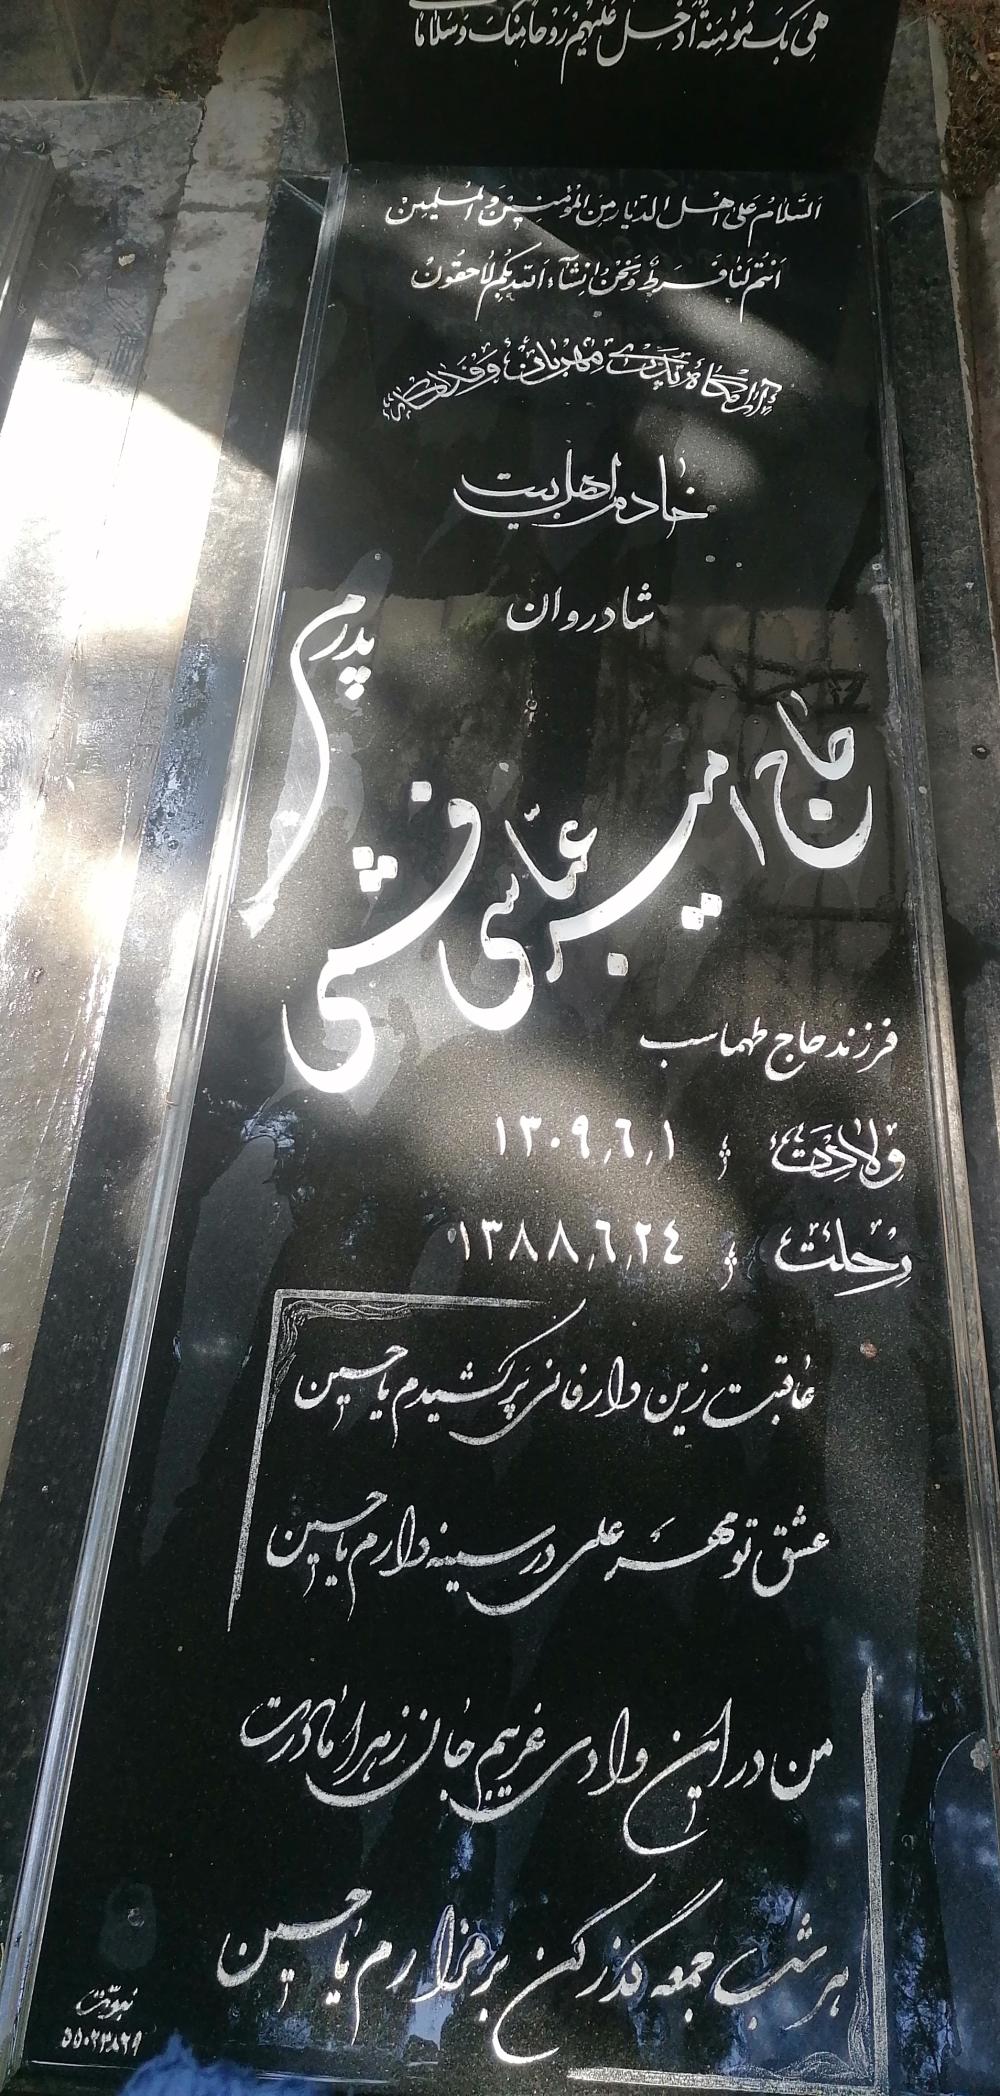 هِیَ بِکَ مُؤمِنَةٌ اَدخِل عَلَیهِم رَوحًا مِنکَ وَ سَلامًا
اَلسَّلامُ عَلیٰ اَهلِ الدّیارِ مِنَ المُؤمِنینَ وَ المُسلِمینَ
اَنتُم لَنا فَرَطٌ وَ نَحنُ اِنشَآءَ الله بِکُم لاحِقُونَ
آرامگاه پدری مهربان و فداکار
خادم اهل بیت
شادروان
پدرم
حاج امیر عباسی فشمی
فرزند حاج طهماسب
ولادت : ۱۳۰۹,٦,۱
رحلت : ۱۳۸۸,٦,۲٤
عاقبت زین دار فانی پر کشیدم یا حسین
عشق تو مهر علی در سینه دارم یا حسین
من در این وادی غریبم جان زهرا مادرت
هر شب جمعه گذر کن بر مزارم یا حسین
نبوت
۵۵۰۲۳۸۲۹